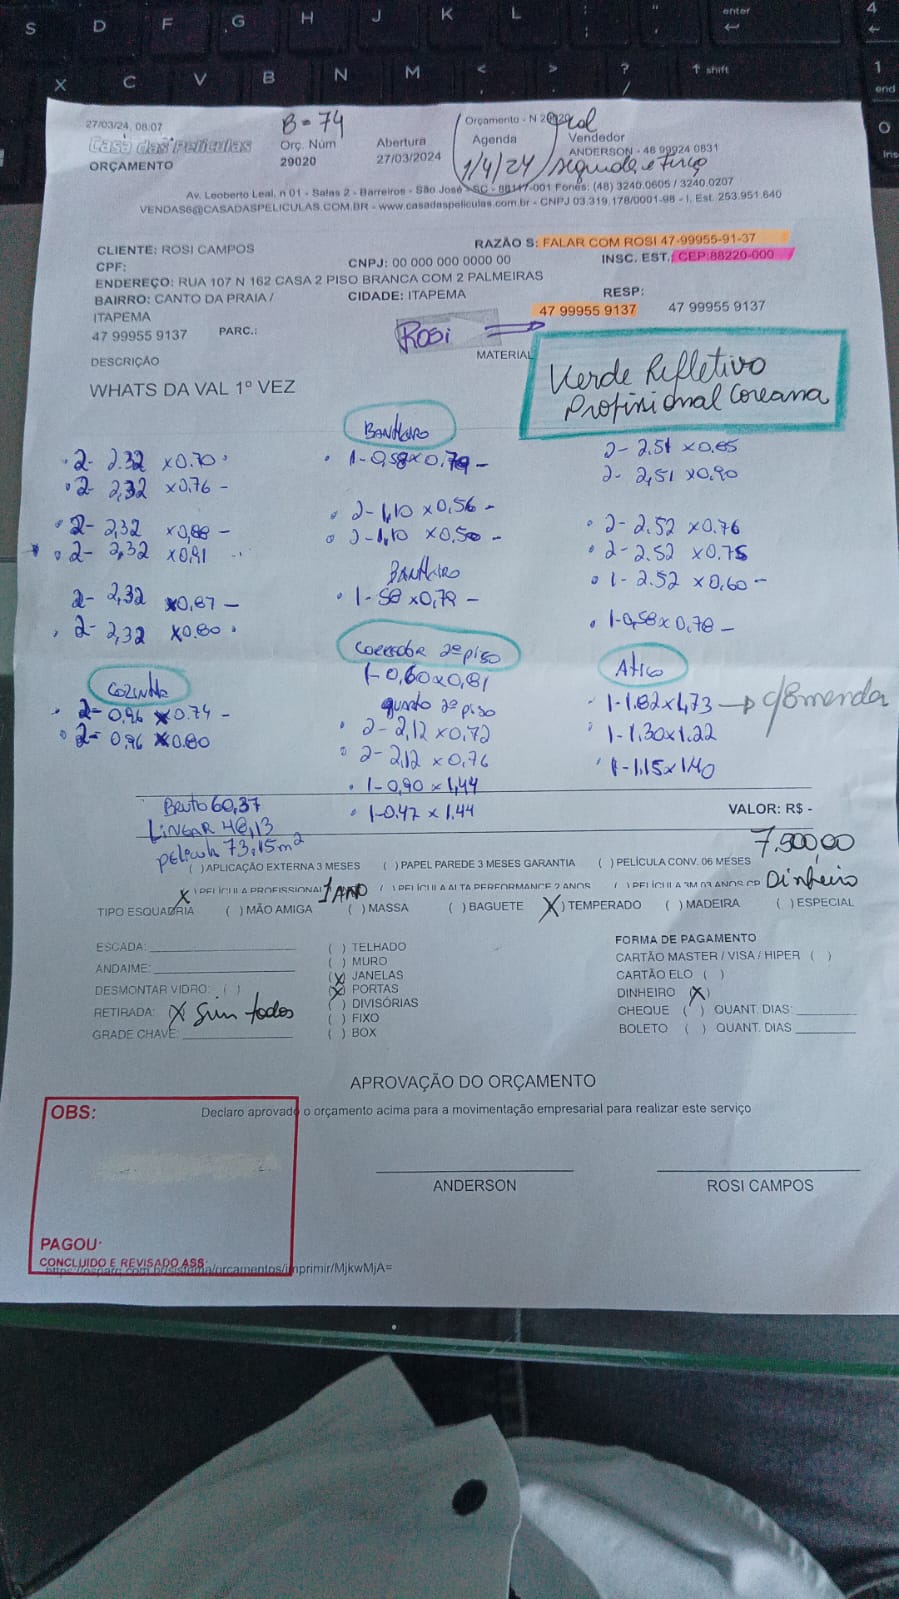 S D F G H J K L : ; " , enter 4
X C V B N M < , > . ? / shift 1 end
0 Ins
27/03/24, 08:07 B = 74 Orçamento - N 29020
Casa das Películas Orç. Núm Abertura Agenda Vendedor
ORÇAMENTO 29020 27/03/2024 1/4/24 segunda e terça ANDERSON - 48 99924 0831
Av. Leoberto Leal, n 01 - Salas 2 - Barreiros - São José - SC - 88117-001 Fones: (48) 3240.0605 / 3240.0207
VENDAS6@CASADASPELICULAS.COM.BR - www.casadaspeliculas.com.br - CNPJ 03.319.178/0001-98 - I. Est. 253.951.640
CLIENTE: ROSI CAMPOS RAZÃO S: FALAR COM ROSI 47-99955-91-37
CPF: CNPJ: 00 000 000 0000 00 INSC. EST.: CEP:88220-000
ENDEREÇO: RUA 107 N 162 CASA 2 PISO BRANCA COM 2 PALMEIRAS
BAIRRO: CANTO DA PRAIA / CIDADE: ITAPEMA RESP:
ITAPEMA 47 99955 9137 47 99955 9137
47 99955 9137 PARC.: ROSi
DESCRIÇÃO MATERIAL
WHATS DA VAL 1º VEZ
Verde Refletivo
Profissional Coreana
2- 2.32 x0.70
2- 2,32 x0,76 -
2- 2,32 x0,88 -
2- 2,32 x0,91
2- 2,32 x0,87 -
2- 2,32 x0.80
COZINHA
2- 0.96 x 0.74 -
2- 0.96 x0.80
BANHEIRO
1-0,58x0,79 -
2-1,10 x0,56 -
2-1,10 x0,50 -
BANHEIRO
1-58 x0,79 -
CORREDOR 2º piso
1-0,60x0,81
quarto 2º piso
2-2,12 x0,72
2-2,12 x0,76
1-0,90 x 1,44
1-0.47 x 1.44
2-2.51 x0.85
2-2,51 x0,90
2-2.52 x0.76
2-2.52 x0,75
1-2.52 x0,60 -
1-0,58x0,78 -
Atico
1-1.82x1,73 → c/8menda
1-1.30x1.22
1-1.15x1.40
Bruto 60,37
LiNEAR 48,13
película 73.15m²
VALOR: R$ -
7.500,00
( ) APLICAÇÃO EXTERNA 3 MESES ( ) PAPEL PAREDE 3 MESES GARANTIA ( ) PELÍCULA CONV. 06 MESES
X ) PELÍCULA PROFISSIONAL 1 ANO ( ) PELÍCULA ALTA PERFORMANCE 2 ANOS ( ) PELÍCULA 3M 03 ANOS CP Dinheiro
TIPO ESQUADRIA ( ) MÃO AMIGA ( ) MASSA ( ) BAGUETE (X) TEMPERADO ( ) MADEIRA ( ) ESPECIAL
ESCADA:
ANDAIME:
DESMONTAR VIDRO: ( )
RETIRADA: X Sim todos
GRADE CHAVE:
( ) TELHADO
( ) MURO
(X) JANELAS
(X) PORTAS
( ) DIVISÓRIAS
( ) FIXO
( ) BOX
FORMA DE PAGAMENTO
CARTÃO MASTER / VISA / HIPER ( )
CARTÃO ELO ( )
DINHEIRO (X)
CHEQUE ( ) QUANT. DIAS:
BOLETO ( ) QUANT. DIAS
APROVAÇÃO DO ORÇAMENTO
OBS: Declaro aprovado o orçamento acima para a movimentação empresarial para realizar este serviço
ANDERSON ROSI CAMPOS
PAGOU:
CONCLUIDO E REVISADO ASS:
/orcamentos/imprimir/MjkwMjA=